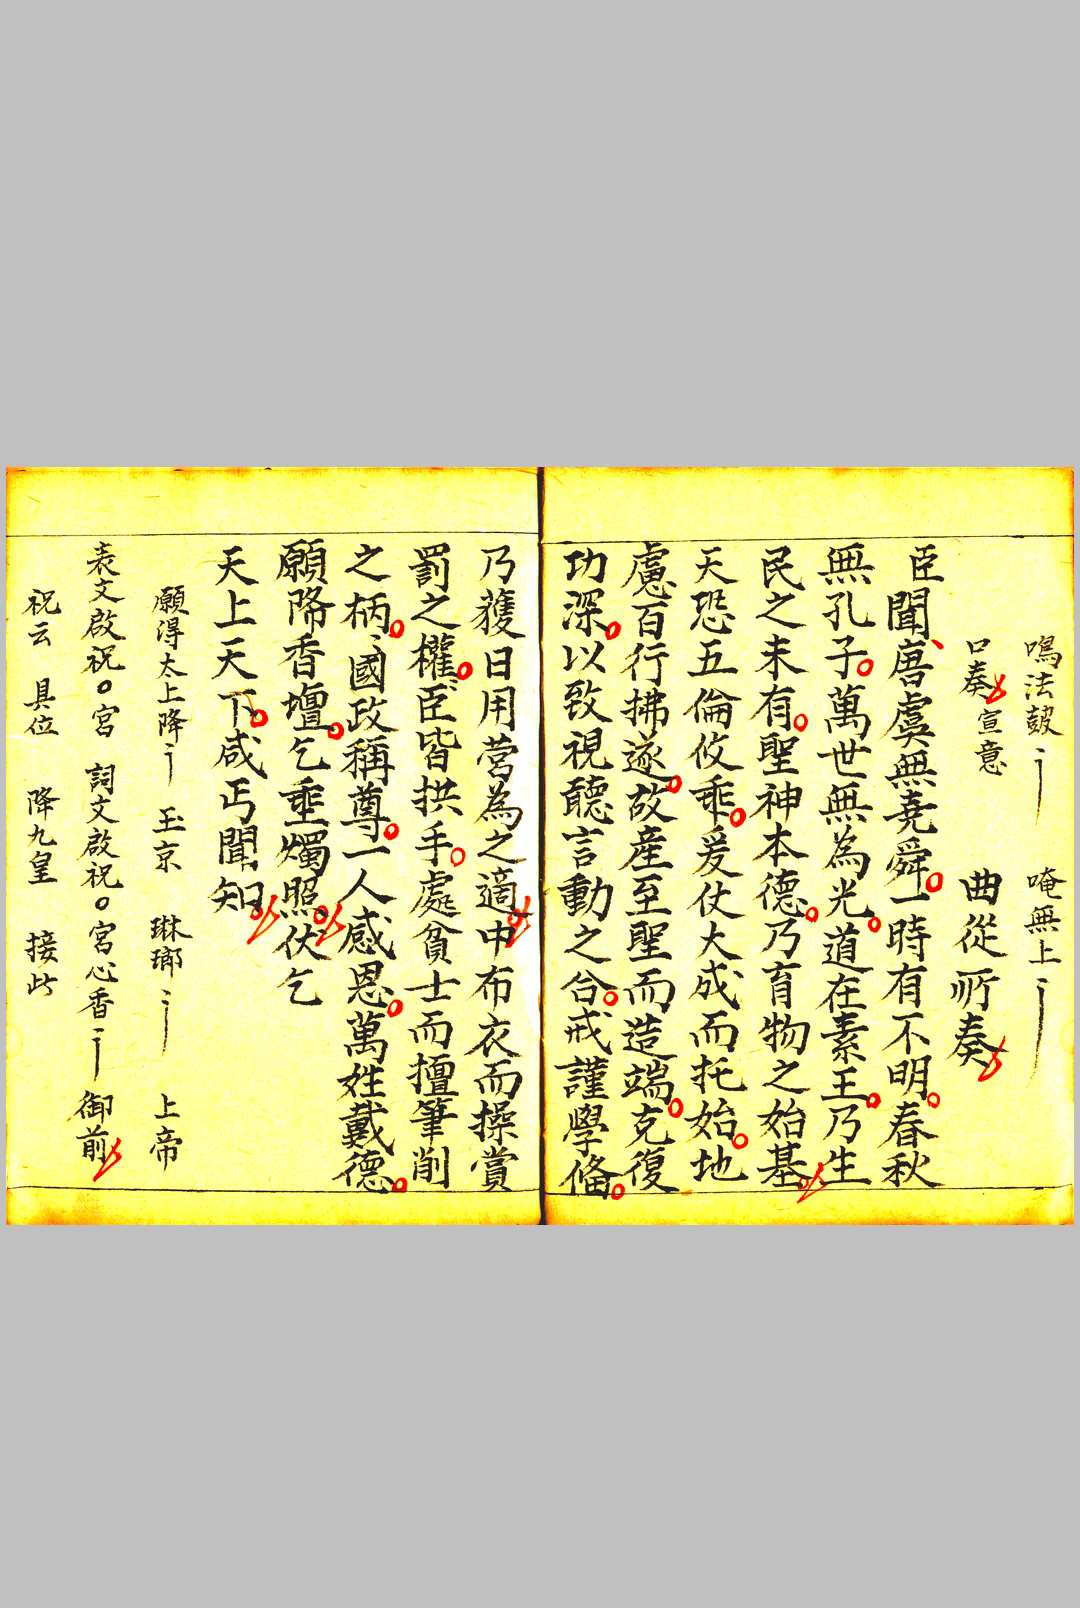 鳴法鼓 唵無上
口奏宣意 曲從所奏
臣聞唐虞無堯舜一時有不明春秋
無孔子萬世無為光道在素王乃生
民之未有聖神本德乃育物之始基
天恐五倫攸乖爰仗大成而托始地
慮百行拂逐故產至聖而造端克復
功深以致視聽言動之合戒謹學俻
乃蒦日用营為之適中布衣而操賞
罰之權臣皆拱手處貧士而擅筆削
之柄國政稱尊一人感恩萬姓戴德
願降香壇乞垂燭照伏乞
天上天下咸丐聞知
願得太上降 玉京 琳瑯 上帝
表文啟祝〇宮 詞文啟祝〇宮心香 御前
祝云 具位 降九皇 接此